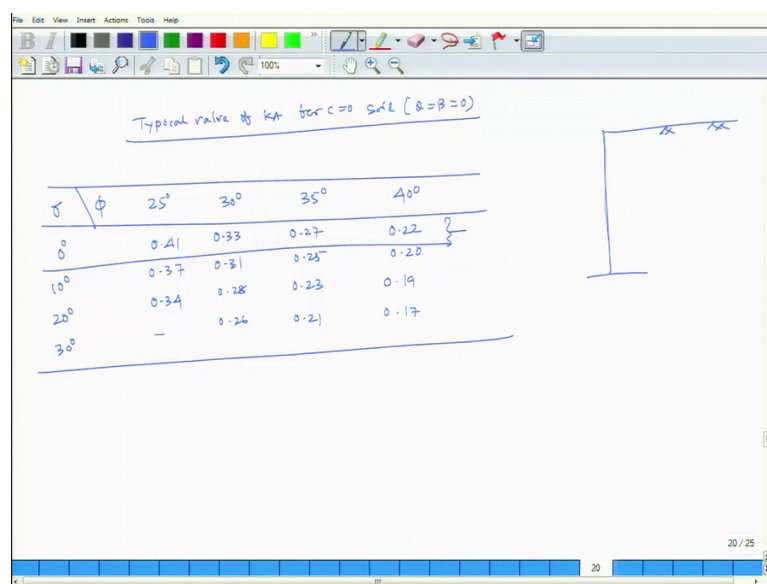 File Edit View Insert Actions Tools Help
B I
100%
Typical value of KA for c=0 soil (θ=β=0)
δ \ φ 25° 30° 35° 40°
0° 0.41 0.33 0.27 0.22
10° 0.37 0.31 0.25 0.20
20° 0.34 0.28 0.23 0.19
30° - 0.26 0.21 0.17
20 / 25
20